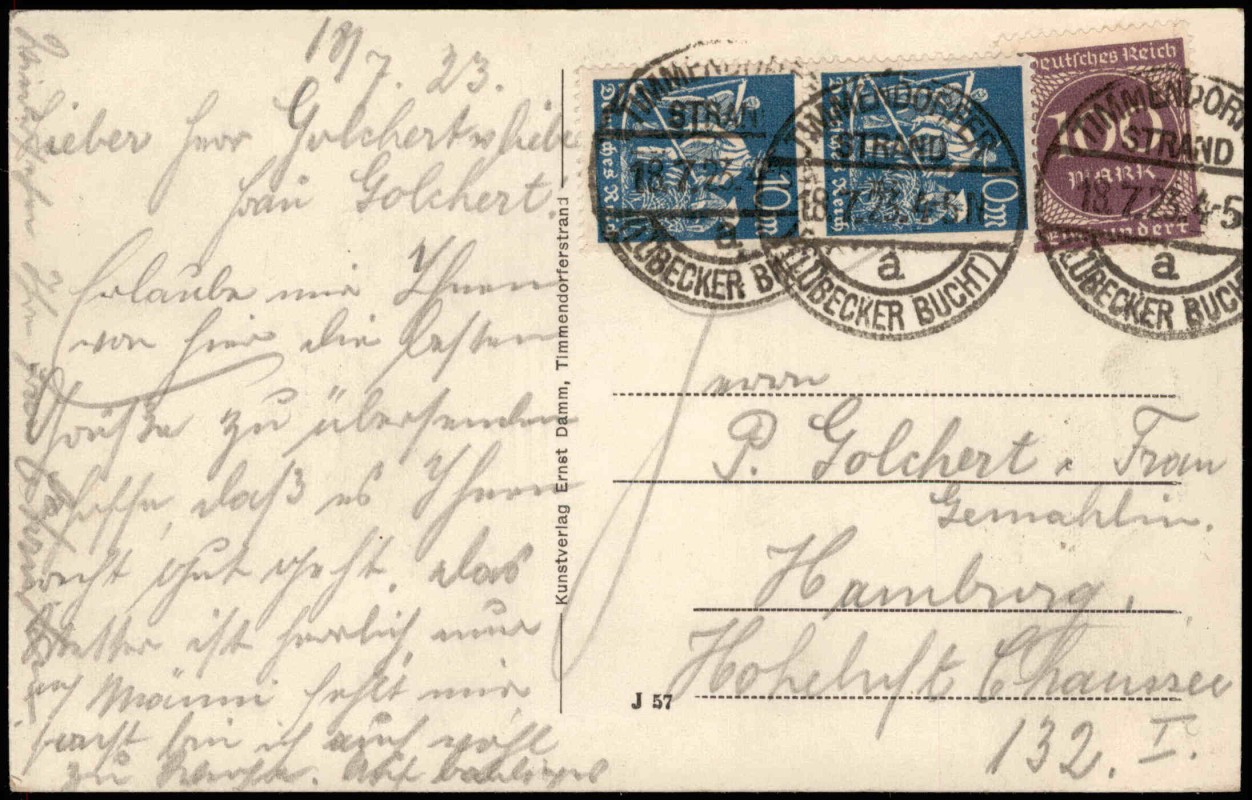 18/7. 23.
Lieber Herr Golchert u. liebe
Frau Golchert.
Erlaube mir Ihnen
von hier die besten
Grüße zu übersenden
hoffe, daß es Ihnen
recht gut geht. Das
Wetter ist herrlich, nur
Männi fehlt mir
sonst bin ich auch wohl
zu
Kunstverlag Ernst Damm, Timmendorferstrand
J 57
Deutsches Reich
10 M
TIMMENDORFER
STRAND
18.7.23.4-5N
a
(LÜBECKER BUCHT)
Deutsches Reich
10 M
TIMMENDORFER
STRAND
18.7.23.4-5N
a
(LÜBECKER BUCHT)
Deutsches Reich
100
MARK
Einhundert
TIMMENDORFER
STRAND
18.7.23.4-5
a
(LÜBECKER BUCHT
Herrn
P. Golchert u. Frau
Gemahlin.
Hamburg,
Hoheluft Chaussee
132. I.